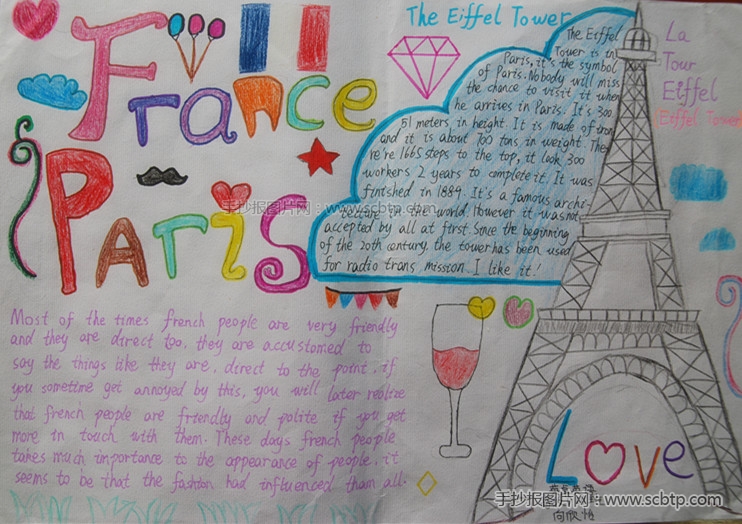 France
Paris
The Eiffel Tower
The Eiffel
Tower is in
Paris, it's the symbol
of Paris. Nobody will miss
the chance to visit it when
he arrives in Paris. It's 300.
51 meters in height. It is made of iron
and it is about 700 tons in weight. The
re're 1665 steps to the top, it look 300
workers 2 years to complete it. It was
finished in 1889. It's a famous archi-
tecture in the world. However it was not
accepted by all at first. Since the beginning
of the 20th century. the tower has been used
for radio trans mission. I like it!
La
Tour
Eiffel
Eiffel Tower
手抄报图片网:www.scbtp.com
Most of the times french people are very friendly
and they are direct too. they are accustomed to
say the things like they are, direct to the point. if
you sometime get annoyed by this, you will later realize
that french people are friendly and polite if you get
more in touch with them. These days french people
takes much importance to the appearance of people. it
seems to be that the fashion had influenced tham all.
Love
手抄报图片网:www.scbtp.com